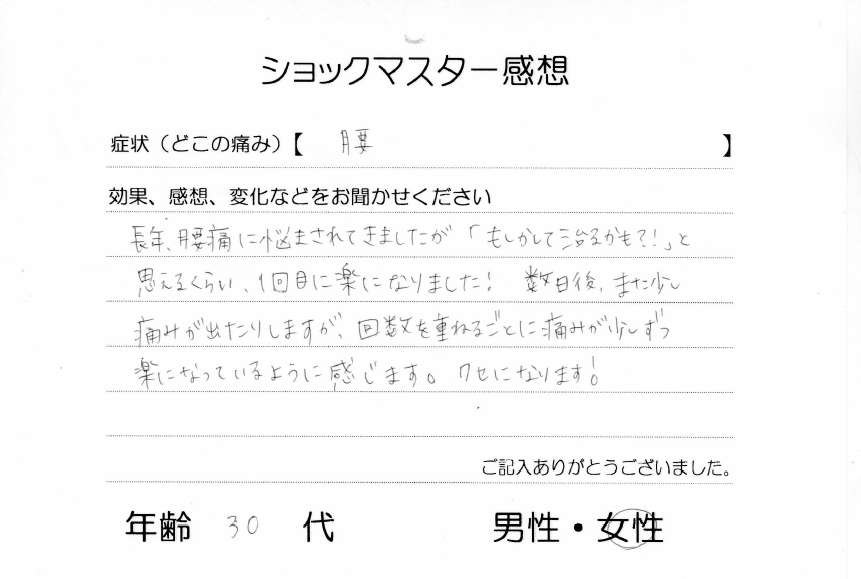 ショックマスター感想
症状（どこの痛み）【 腰 】
効果、感想、変化などをお聞かせください
長年、腰痛に悩まされてきましたが「もしかして治るかも?!」と
思えるくらい、1回目に楽になりました! 数日後、また少し
痛みが出たりしますが、回数を重ねるごとに痛みが少しずつ
楽になっているように感じます。クセになります!
ご記入ありがとうございました。
年齢 30 代 男性・女性